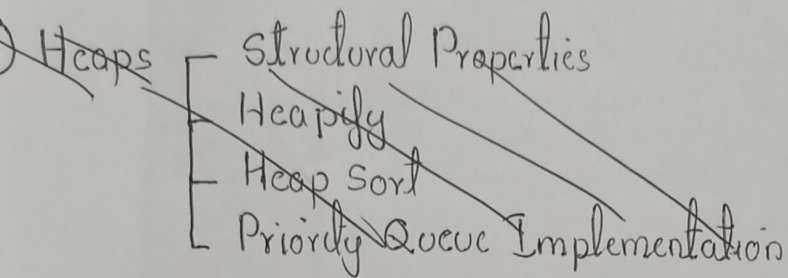 ) Heaps
Structural Properties
Heapify
Heap Sort
Priority Queue Implementation